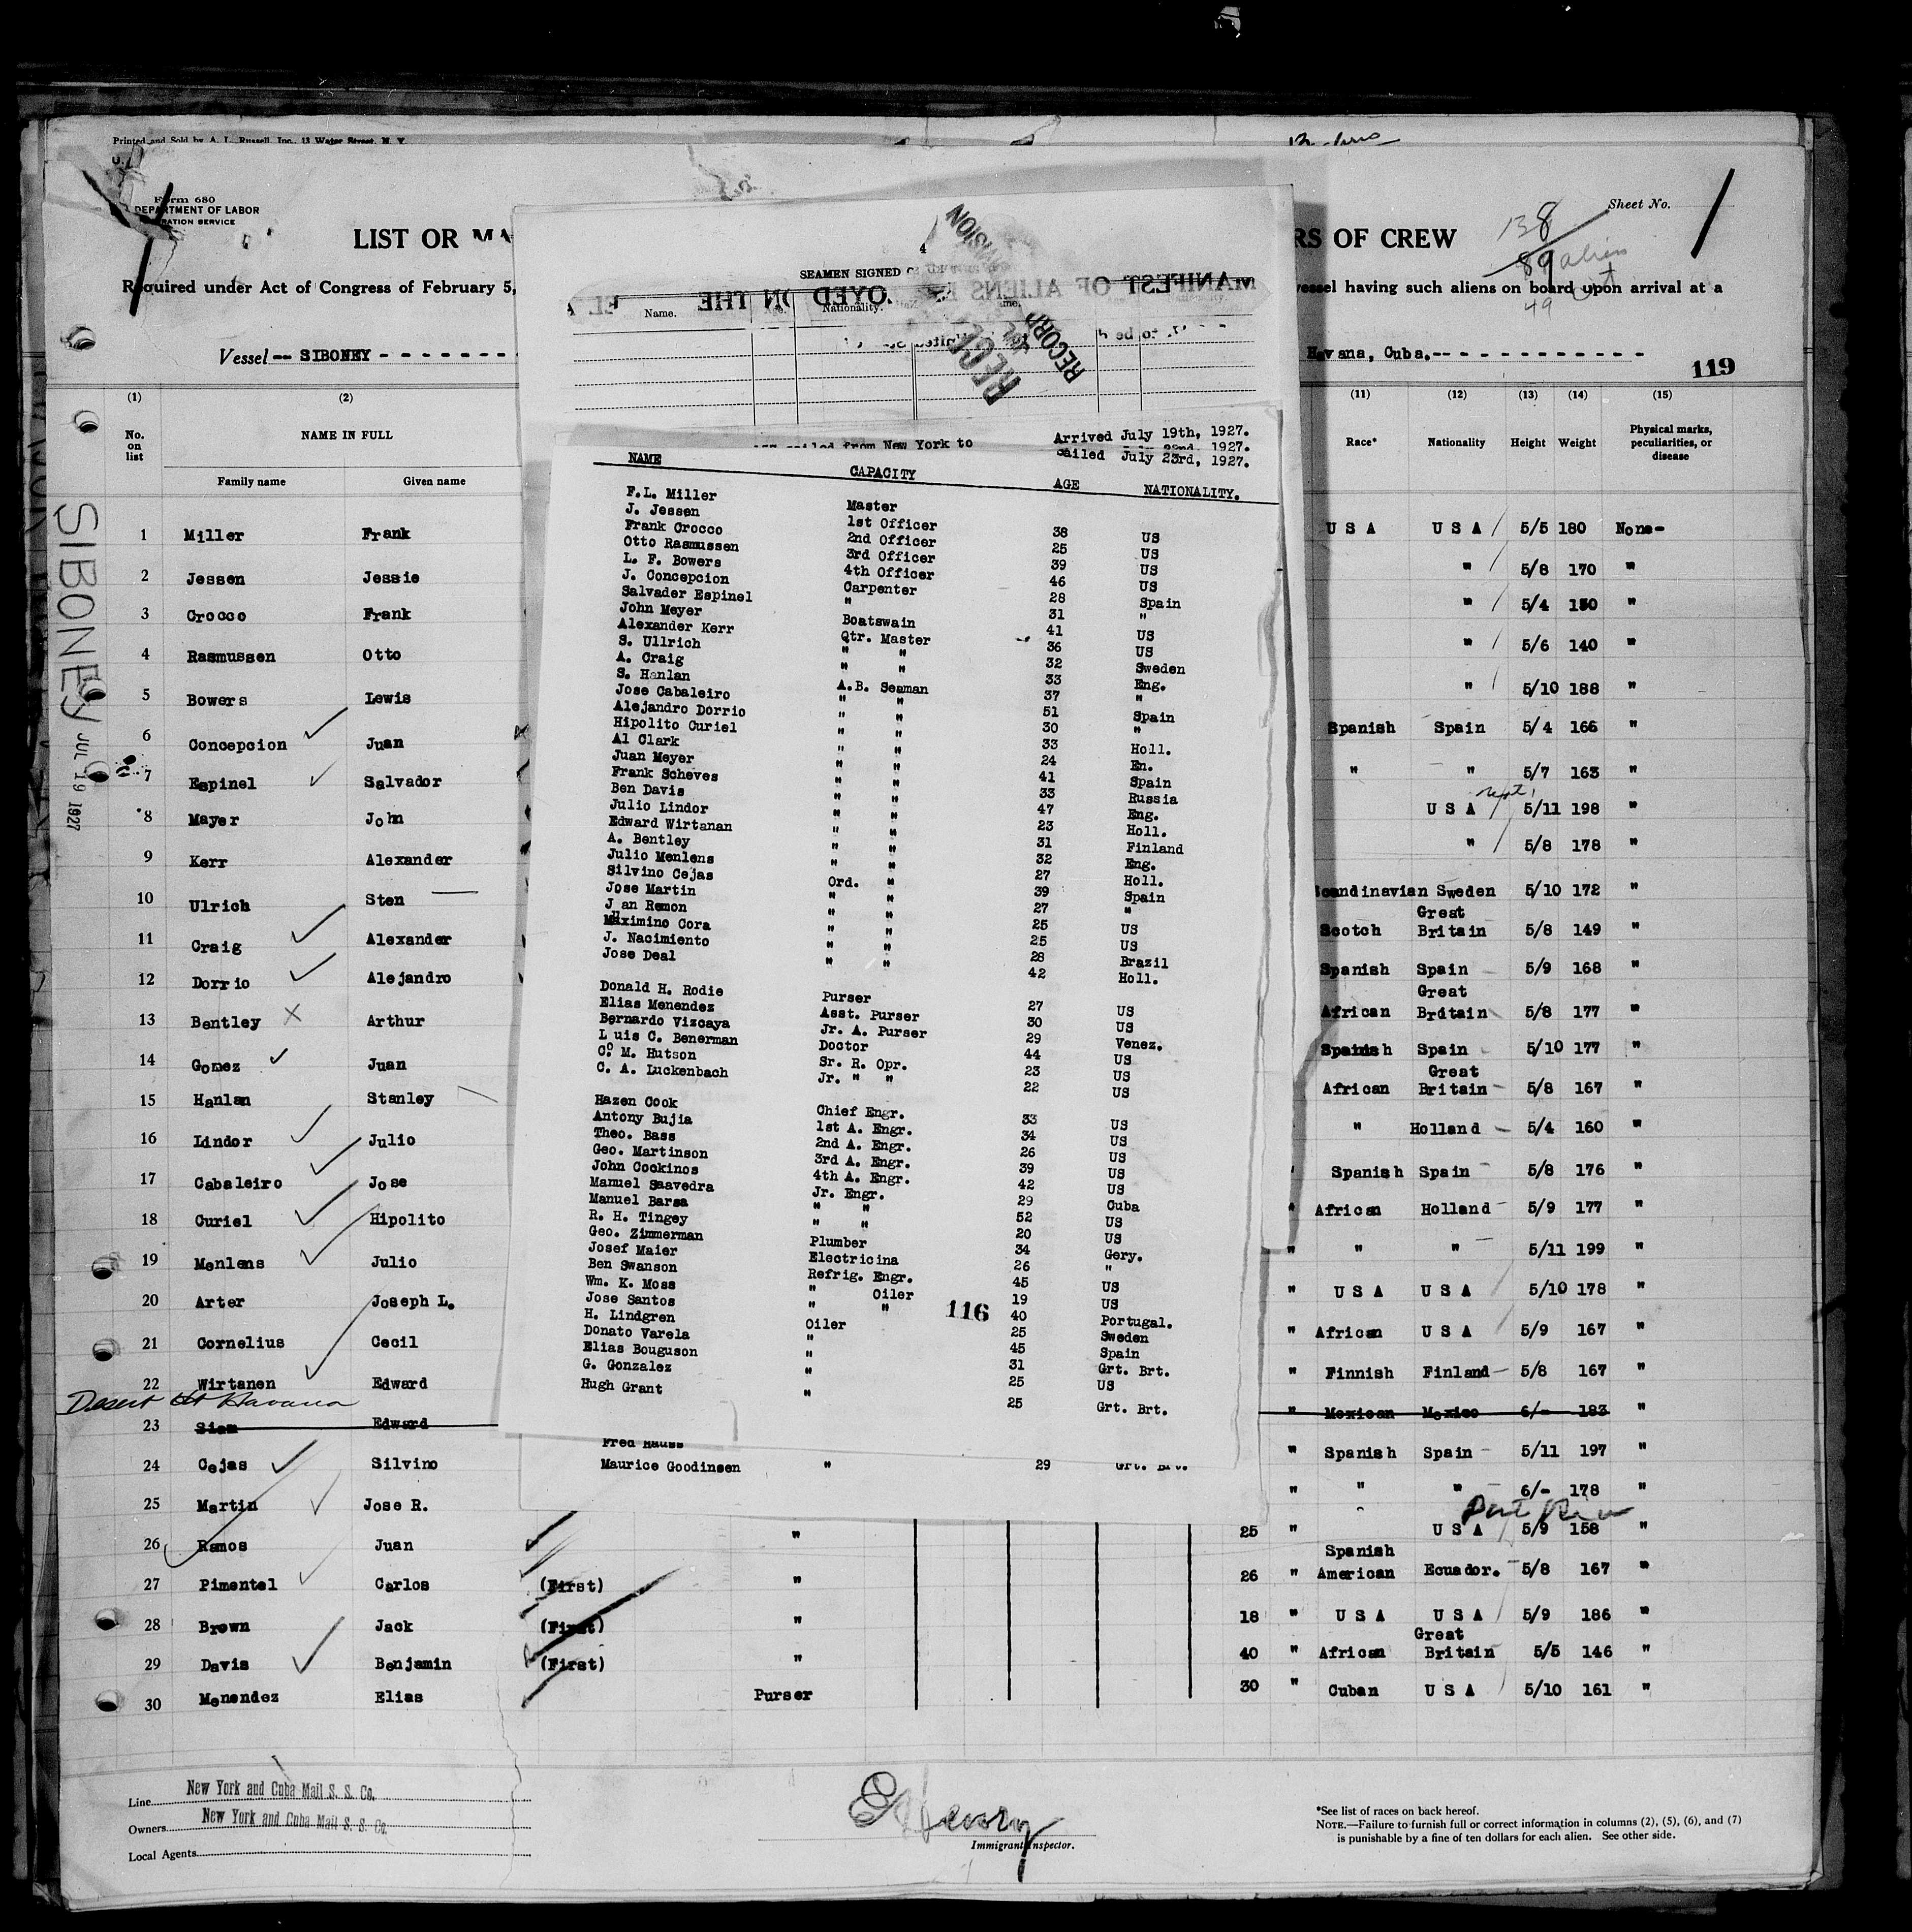 Printed and Sold by A. L. Russell, Inc., 13 Water Street, N. Y.
Form 680
DEPARTMENT OF LABOR
Sheet No.
138
89 alien
49
LIST OR
RS OF CREW
Required under Act of Congress of February 5,
vessel having such aliens on board upon arrival at a
Vessel -- SIBONEY
Havana, Cuba.
119
4
SEAMEN SIGNED
MANIFEST OF ALIENS
OYED ON THE
Name.
Nationality.
RECORD
(1) (2) (11) (12) (13) (14) (15)
No. on list
NAME IN FULL
Family name Given name
Race* Nationality Height Weight Physical marks, peculiarities, or disease
SIBONEY JUL 19 1927
1 Miller Frank U S A U S A 5/5 180 None-
2 Jessen Jessie " 5/8 170 "
3 Crocco Frank " 5/4 150 "
4 Rasmussen Otto " 5/6 140 "
5 Bowers Lewis " 5/10 188 "
6 Concepcion Juan Spanish Spain 5/4 166 "
7 Espinel Salvador " " 5/7 163 "
8 Mayer John U S A 5/11 198 "
9 Kerr Alexander " 5/8 178 "
10 Ulrich Sten Scandinavian Sweden 5/10 172 "
11 Craig Alexander Scotch Great Britain 5/8 149 "
12 Dorrio Alejandro Spanish Spain 5/9 168 "
13 Bentley Arthur African Great Brdtain 5/8 177 "
14 Gomez Juan Spanish Spain 5/10 177 "
15 Hanlan Stanley African Great Britain 5/8 167 "
16 Lindor Julio " Holland 5/4 160 "
17 Cabaleiro Jose Spanish Spain 5/8 176 "
18 Curiel Hipolito " African Holland 5/9 177 "
19 Menlens Julio " " " 5/11 199 "
20 Arter Joseph L. " U S A U S A 5/10 178 "
21 Cornelius Cecil " African U S A 5/9 167 "
22 Wirtanen Edward " Finnish Finland 5/8 167 "
Desert at Havana
23 Siam Edward " Mexican Mexico 6/- 183 "
24 Cejas Silvino " Spanish Spain 5/11 197 "
25 Martin Jose R. " " " 6/- 178 "
26 Ramos Juan " 25 " U S A 5/9 158 "
27 Pimentel Carlos (First) " 26 " Spanish American Ecuador. 5/8 167 "
28 Brown Jack (First) " 18 " U S A U S A 5/9 186 "
29 Davis Benjamin (First) " 40 " African Great Britain 5/5 146 "
30 Menendez Elias Purser 30 " Cuban U S A 5/10 161 "
sailed from New York to
Arrived July 19th, 1927.
Sailed July 23rd, 1927.
NAME CAPACITY AGE NATIONALITY.
F.L. Miller Master
J. Jessen 1st Officer 38 US
Frank Crocco 2nd Officer 25 US
Otto Rasmussen 3rd Officer 39 US
L. F. Bowers 4th Officer 46 US
J. Concepcion Carpenter 28 Spain
Salvader Espinel " 31 "
John Meyer Boatswain 41 US
Alexander Kerr Qtr. Master 36 US
S. Ullrich " " 32 Sweden
A. Craig " " 33 Eng.
S. Hanlan A.B. Seaman 37 "
Jose Cabaleiro " " 51 Spain
Alejandro Dorrio " " 30 "
Hipolito Curiel " " 33 Holl.
Al Clark " " 24 En.
Juan Meyer " " 41 Spain
Frank Scheves " " 33 Russia
Ben Davis " " 47 Eng.
Julio Lindor " " 23 Holl.
Edward Wirtanan " " 31 Finland
A. Bentley " " 32 Eng.
Julio Menlens " " 27 Holl.
Silvino Cejas Ord. " 39 Spain
Jose Martin " " 27 "
Juan Remon " " 25 US
Maximino Cora " " 25 US
J. Nacimiento " " 28 Brazil
Jose Deal " " 42 Holl.
Donald H. Rodie Purser 27 US
Elias Menendez Asst. Purser 30 US
Bernardo Vizcaya Jr. A. Purser 29 Venez.
Luis C. Benerman Doctor 44 US
C. M. Hutson Sr. R. Opr. 23 US
C. A. Luckenbach Jr. " " 22 US
Hazen Cook Chief Engr. 33 US
Antony Bujia 1st A. Engr. 34 US
Theo. Bass 2nd A. Engr. 26 US
Geo. Martinson 3rd A. Engr. 39 US
John Cockinos 4th A. Engr. 42 US
Manuel Saavedra Jr. Engr. 29 Cuba
Manuel Barsa " " 52 US
R. H. Tingey " " 20 US
Geo. Zimmerman Plumber 34 Gery.
Josef Maier Electricina 26 "
Ben Swanson Refrig. Engr. 45 US
Wm. K. Moss " Oiler 19 US
Jose Santos " " 40 Portugal.
H. Lindgren Oiler 25 Sweden
Donato Varela " 45 Spain
Elias Bouguson " 31 Grt. Brt.
G. Gonzalez " 25 US
Hugh Grant " 25 Grt. Brt.
116
Fred Hauss
Maurice Goodinsen " 29 Grt. Brt.
Line New York and Cuba Mail S. S. Co.
Owners New York and Cuba Mail S. S. Co.
Local Agents
Henry
Immigrant Inspector.
*See list of races on back hereof.
NOTE.—Failure to furnish full or correct information in columns (2), (5), (6), and (7)
is punishable by a fine of ten dollars for each alien. See other side.